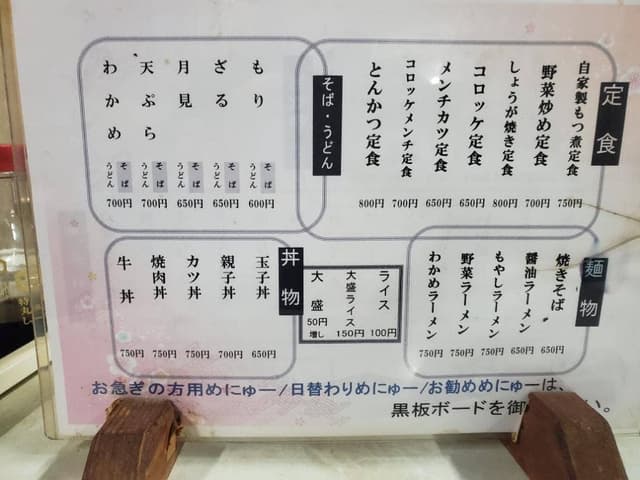 定食
自家製もつ煮定食 750円
野菜炒め定食 700円
しょうが焼き定食 800円
コロッケ定食 650円
メンチカツ定食 650円
コロッケメンチ定食 700円
とんかつ定食 800円
そば・うどん
もり そば うどん 600円
ざる そば うどん 650円
月見 そば うどん 650円
天ぷら そば うどん 700円
わかめ そば うどん 700円
麺物
焼きそば 650円
醤油ラーメン 650円
もやしラーメン 750円
野菜ラーメン 750円
わかめラーメン 750円
ライス 100円
大盛ライス 150円
大盛 50円増し
丼物
玉子丼 650円
親子丼 700円
カツ丼 750円
焼肉丼 750円
牛丼 750円
お急ぎの方用めにゅー/日替わりめにゅー/お勧めめにゅーは、
黒板ボードを御
い。